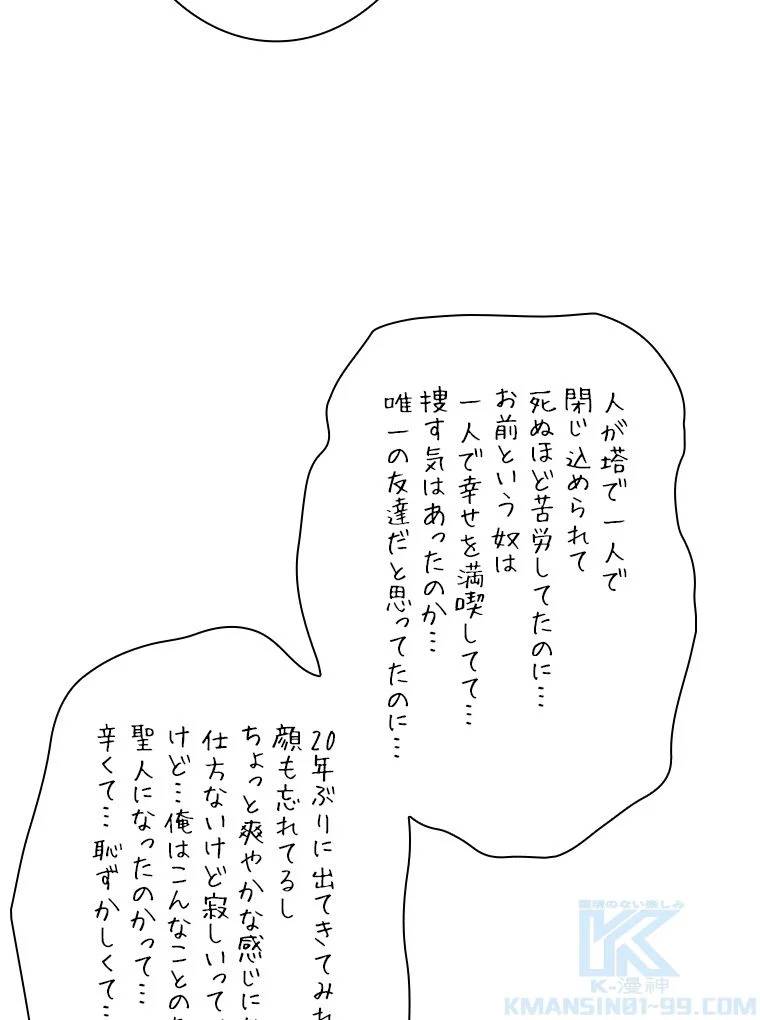 人が塔で一人で
閉じ込められて
死ぬほど苦労してたのに…
お前という奴は
一人で幸せを満喫してて…
捜す気はあったのか…
唯一の友達だと思ってたのに…
20年ぶりに出てきてみれ
顔も忘れてるし
ちょっと爽やかな感じに
仕方ないけど寂しいって
けど…俺はこんなことの
聖人になったのかって…
辛くて…恥ずかしくて…
K-漫神
KMANSIN01-99.COM